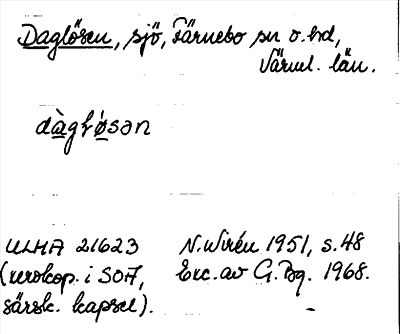 Daglösen, sjö, Färnebo sn o. hd,
Värml. län.
dàgľǿsən
ULMA 21623
(xerokop. i SOA,
särsk. kapsel).
N. Wirén 1951, s. 48
Exc. av G. Bg. 1968.